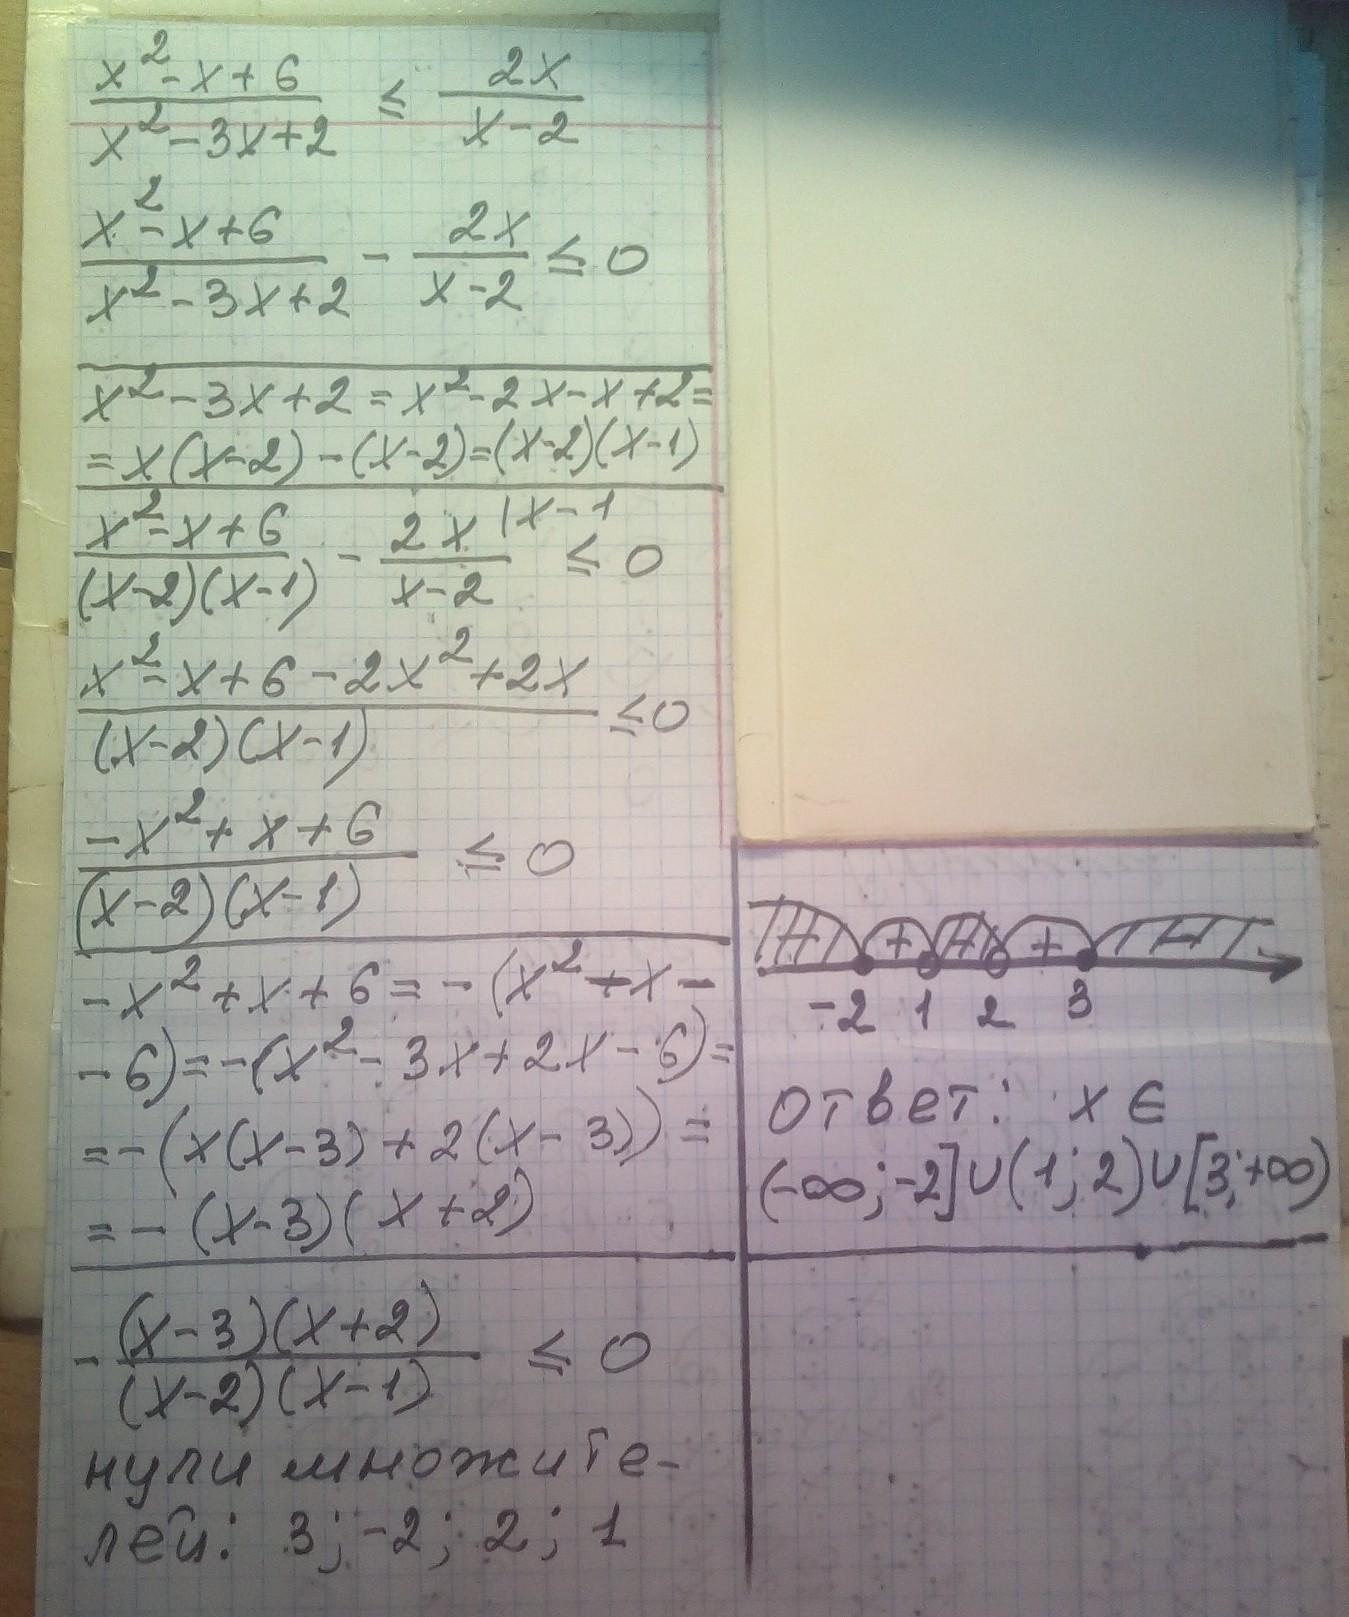 x² - x + 6 / x² - 3x + 2 ≤ 2x / x - 2
x² - x + 6 / x² - 3x + 2 - 2x / x - 2 ≤ 0
x² - 3x + 2 = x² - 2x - x + 2 =
= x(x-2) - (x-2) = (x-2)(x-1)
x² - x + 6 / (x-2)(x-1) - 2x |x-1 / x-2 ≤ 0
x² - x + 6 - 2x² + 2x / (x-2)(x-1) ≤ 0
-x² + x + 6 / (x-2)(x-1) ≤ 0
-x² + x + 6 = -(x² - x -
- 6) = -(x² - 3x + 2x - 6) =
= -(x(x-3) + 2(x-3)) =
= -(x-3)(x+2)
- (x-3)(x+2) / (x-2)(x-1) ≤ 0
нули множите-
лей: 3; -2; 2; 1
- + - + -
-2 1 2 3
ответ: x ∈
(-∞; -2] ∪ (1; 2) ∪ [3; +∞)